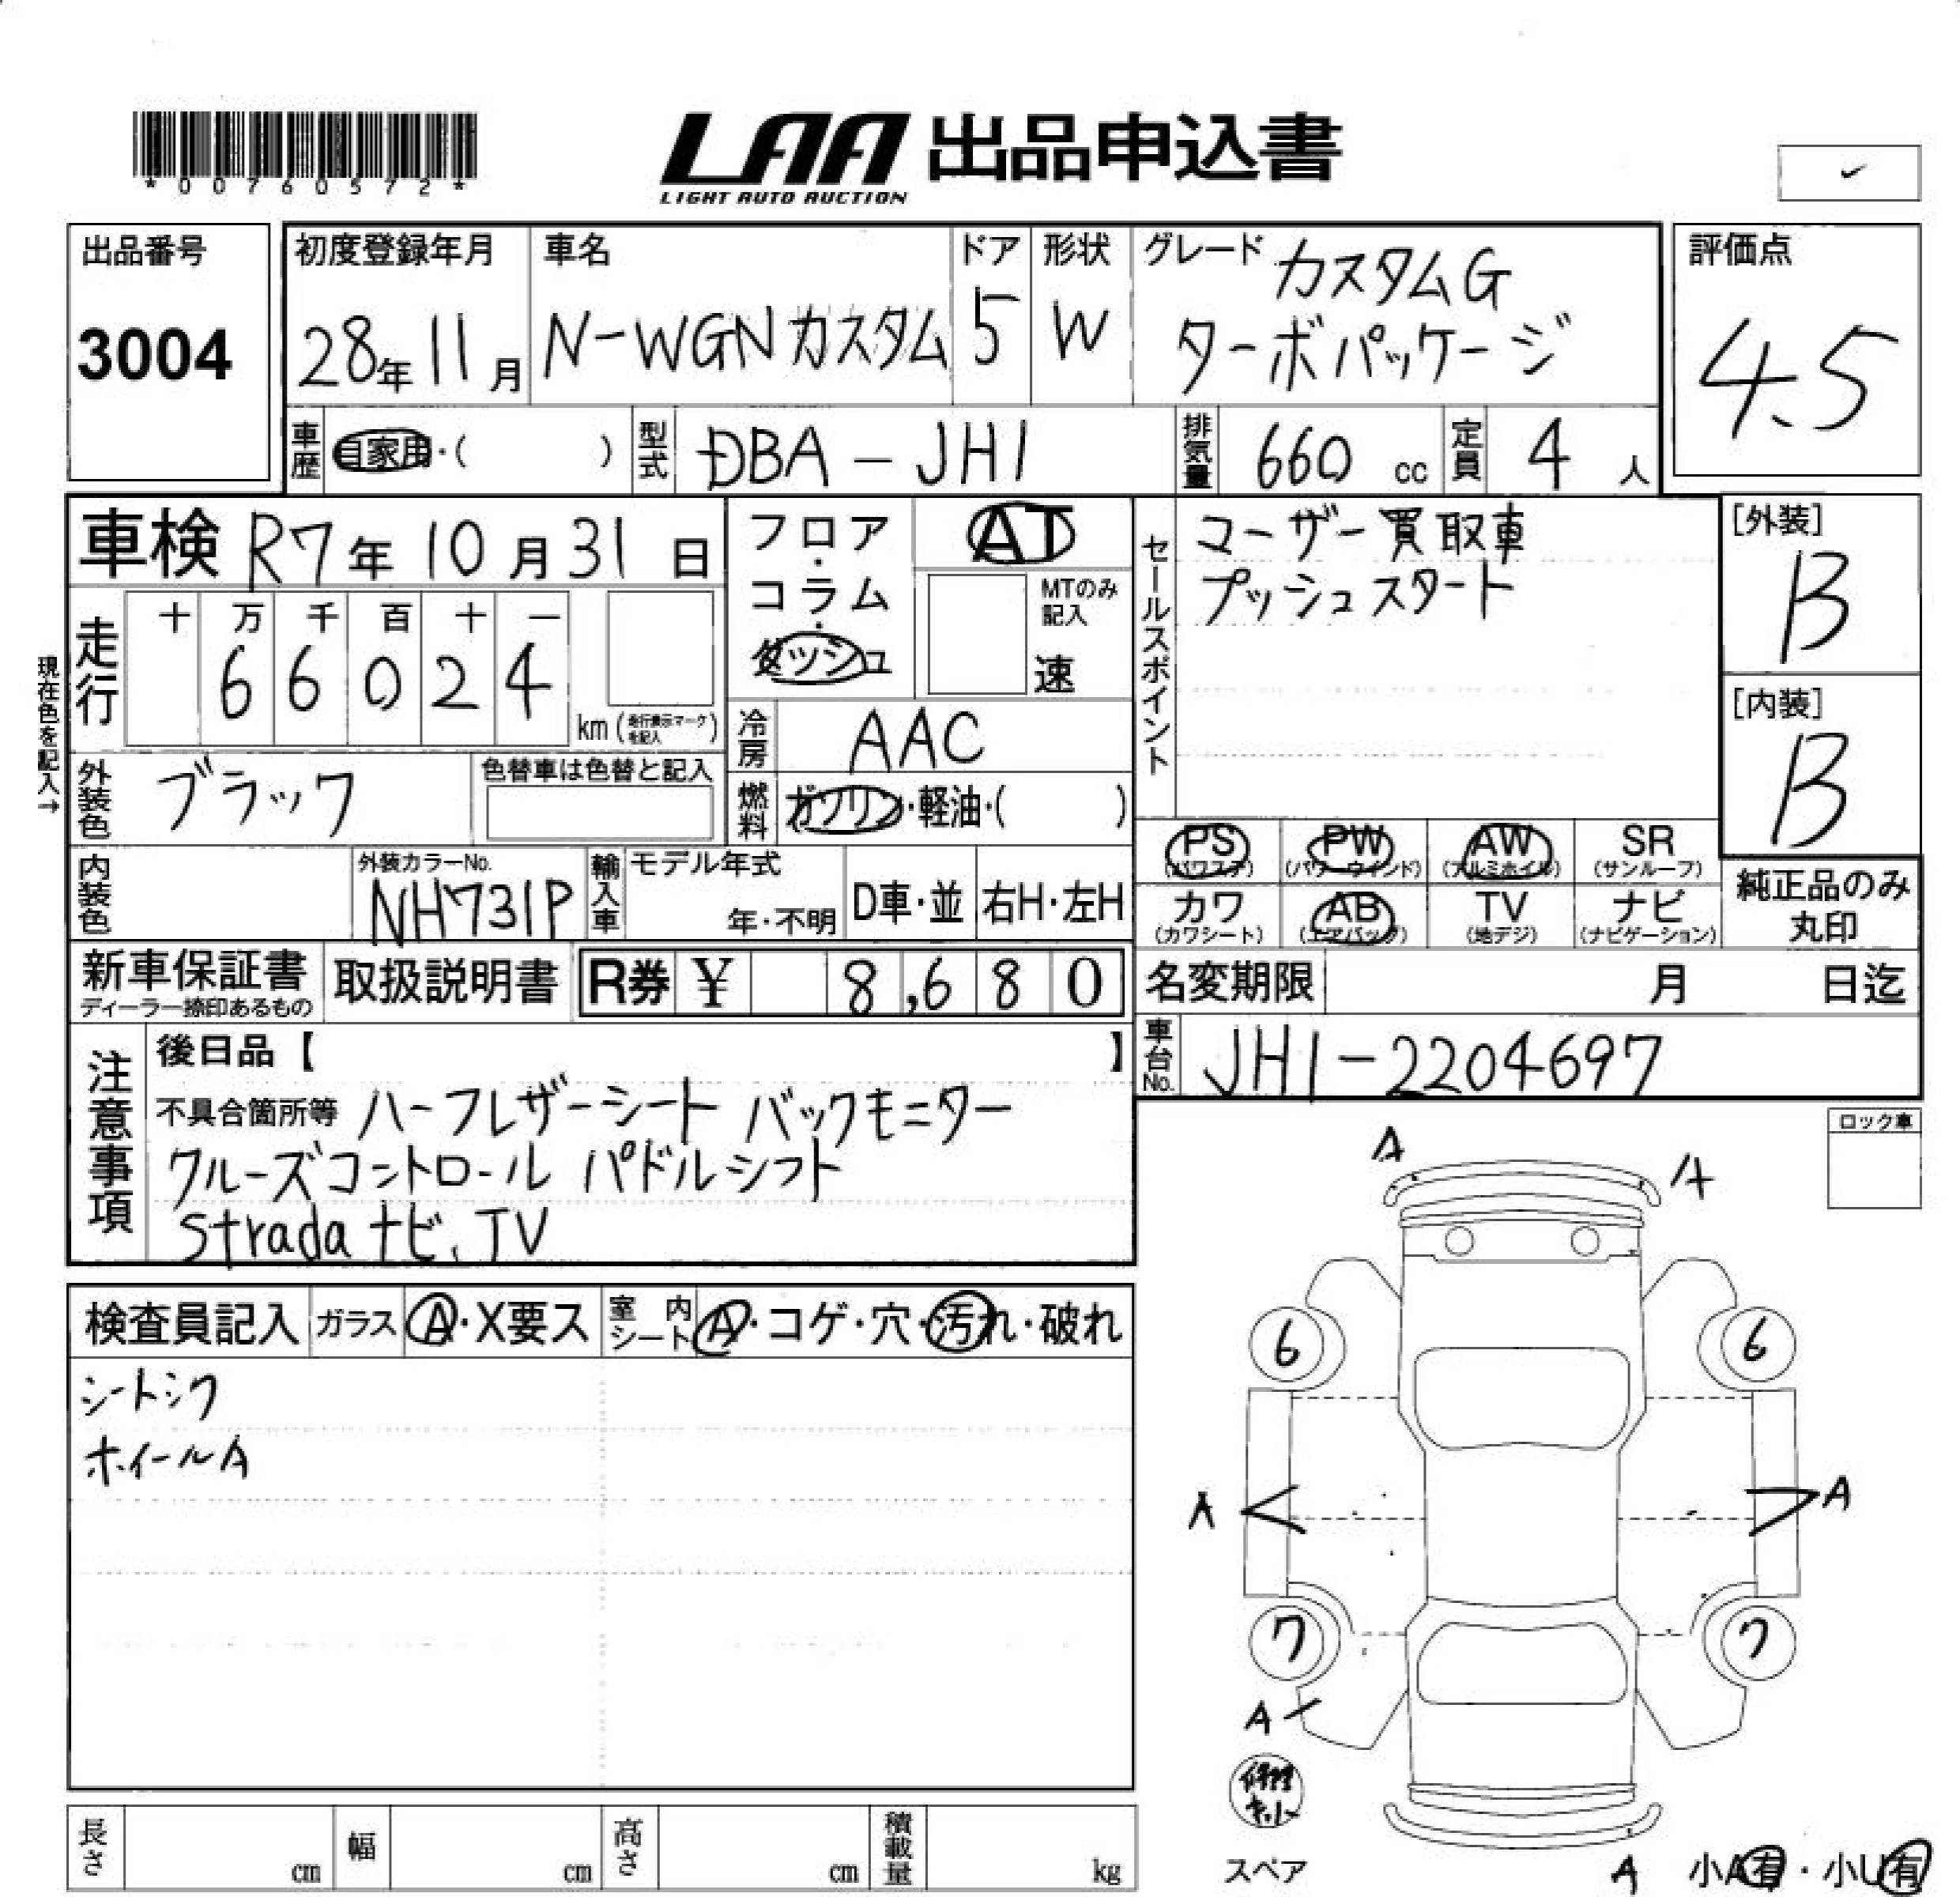 *00760572*
LAA 出品申込書
LIGHT AUTO AUCTION
出品番号
3004
初度登録年月
28年11月
車名
N-WGN カスタム
ドア
5
形状
W
グレード カスタムG
ターボパッケージ
評価点
4.5
車歴 自家用・( )
型式 DBA-JH1
排気量 660 cc
定員 4 人
車検 R7年10月31日
フロア・コラム・ダッシュ
AT
MTのみ記入
速
セールスポイント
ユーザー買取車
プッシュスタート
[外装]
B
[内装]
B
現在色を記入→
走行
十 万 千 百 十 一
6 6 0 2 4
km(走行表示マークを記入)
冷房 AAC
外装色 ブラック
色替車は色替と記入
燃料 ガソリン・軽油・( )
PS (パワステ)
PW (パワーウインド)
AW (アルミホイル)
SR (サンルーフ)
カワ (カワシート)
AB (エアバック)
TV (地デジ)
ナビ (ナビゲーション)
純正品のみ丸印
内装色
外装カラーNo.
NH731P
輸入車
モデル年式
年・不明
D車・並
右H・左H
新車保証書
ディーラー捺印あるもの
取扱説明書
R券 ¥ 8,680
名変期限 月 日迄
車台No. JH1-2204697
注意事項
後日品【 】
不具合箇所等 ハーフレザーシート バックモニター
クルーズコントロール パドルシフト
Strada ナビ、TV
ロック車
A
A
検査員記入
ガラス A・X要ス
室内シート A・コゲ・穴・汚れ・破れ
シートシワ
ホイールA
6
6
A
A
7
7
A
修理キット
スペア
A
小A有・小U有
長さ cm
幅 cm
高さ cm
積載量 kg